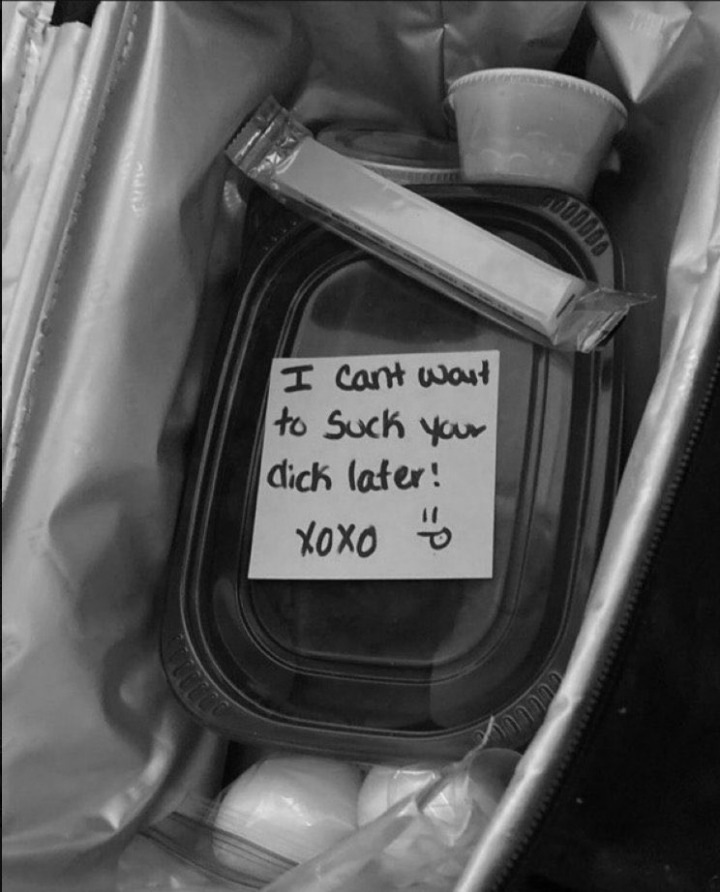 I Cant wait
to Suck your
dick later!
XOXO =P